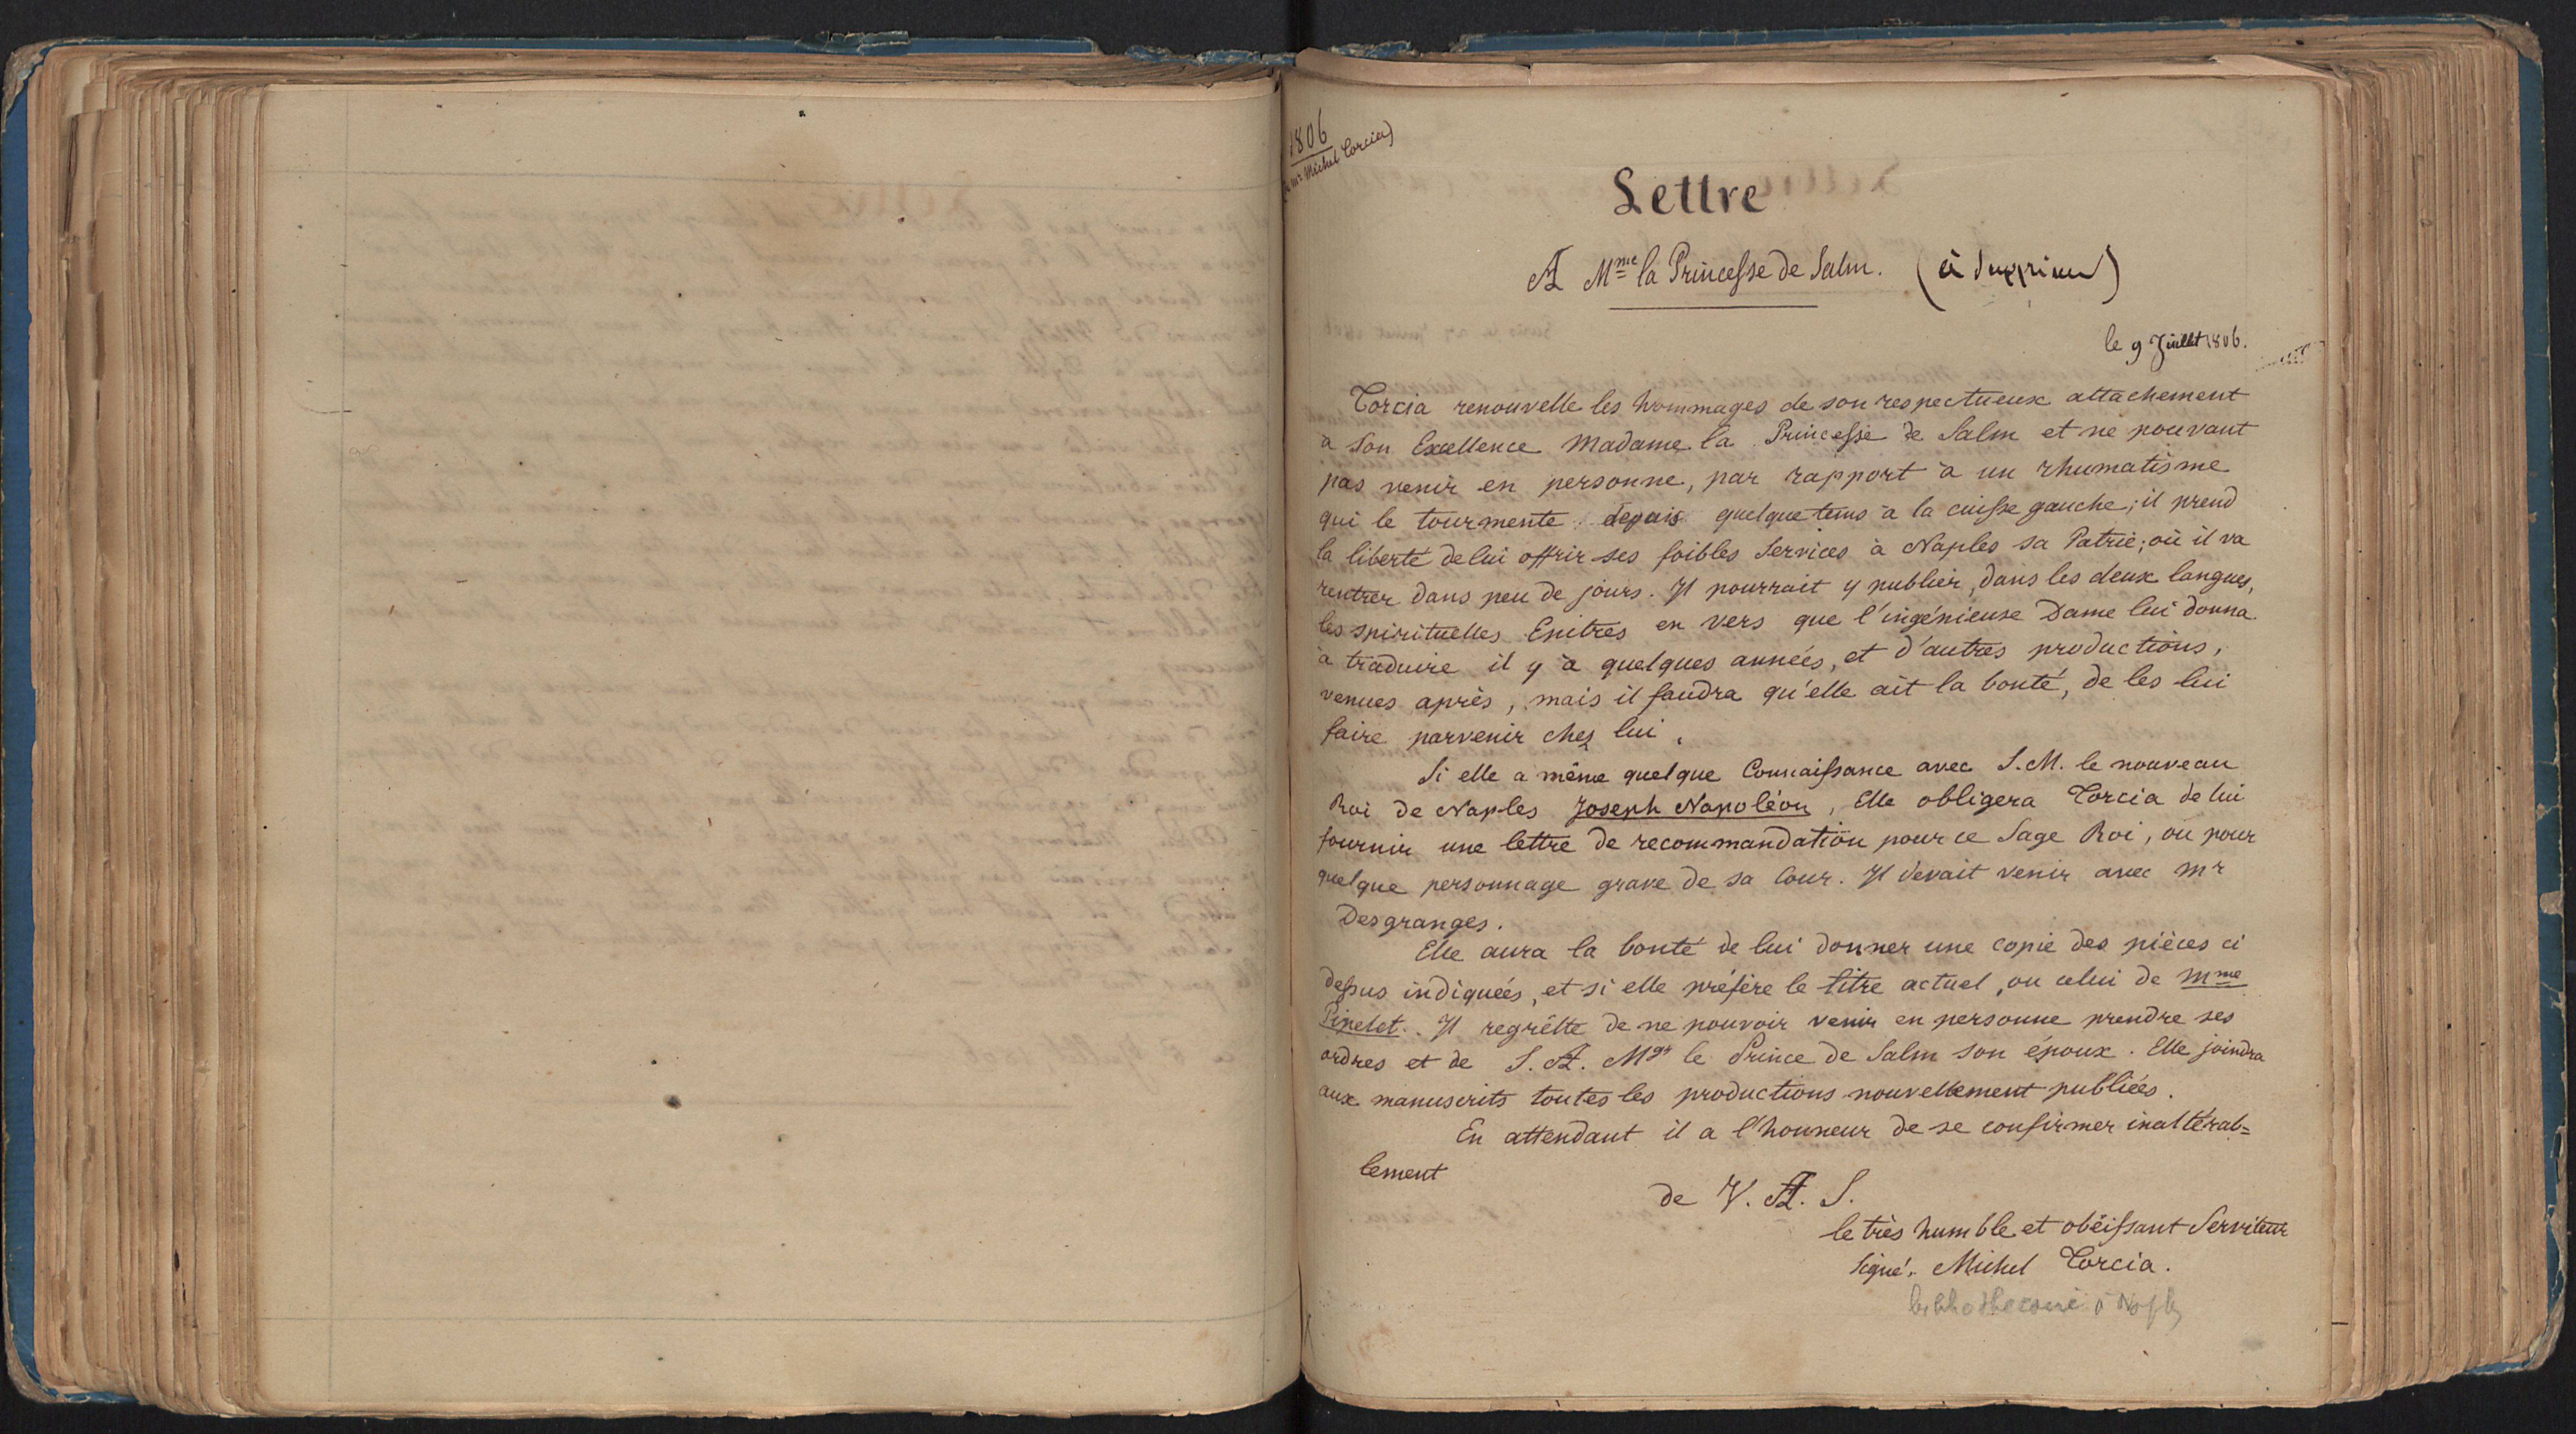 1806
(de mr Michel Torcia)
Lettre
A Mme la Princesse de Salm. (à supprimer)
le 9 Juillet 1806.
Torcia renouvelle les hommages de son respectueux attachement
à Son Excellence Madame la Princesse de Salm et ne pouvant
pas venir en personne, par rapport à un rhumatisme
qui le tourmente depuis quelque tems à la cuisse gauche; il prend
la liberté de lui offrir ses foibles Services à Naples sa Patrie; où il va
rentrer dans peu de jours. Il pourrait y publier, dans les deux langues,
les spirituelles Epitres en vers que l'ingénieuse Dame lui donna
à traduire il y a quelques années, et d'autres productions,
venues après, mais il faudra qu'elle ait la bonté, de les lui
faire parvenir chez lui.
Si elle a même quelque Connaissance avec S. M. le nouveau
Roi de Naples Joseph Napoléon, Elle obligera Torcia de lui
fournir une lettre de recommandation pour ce Sage Roi, ou pour
quelque personnage grave de sa Cour. Il devait venir avec mr
Desgranges.
Elle aura la bonté de lui donner une copie des pièces ci
dessus indiquées, et si elle préfère le titre actuel, ou celui de Mme
Pipelet. Il regrètte de ne pouvoir venir en personne prendre ses
ordres et de S. A. Mgr le Prince de Salm son époux. Elle joindra
aux manuscrits toutes les productions nouvellement publiées.
En attendant il a l'honneur de se confirmer inaltérab=
lement
de V. A. S.
le très humble et obéissant Serviteur
Signé, Michel Torcia.
bibliothécaire à Naples